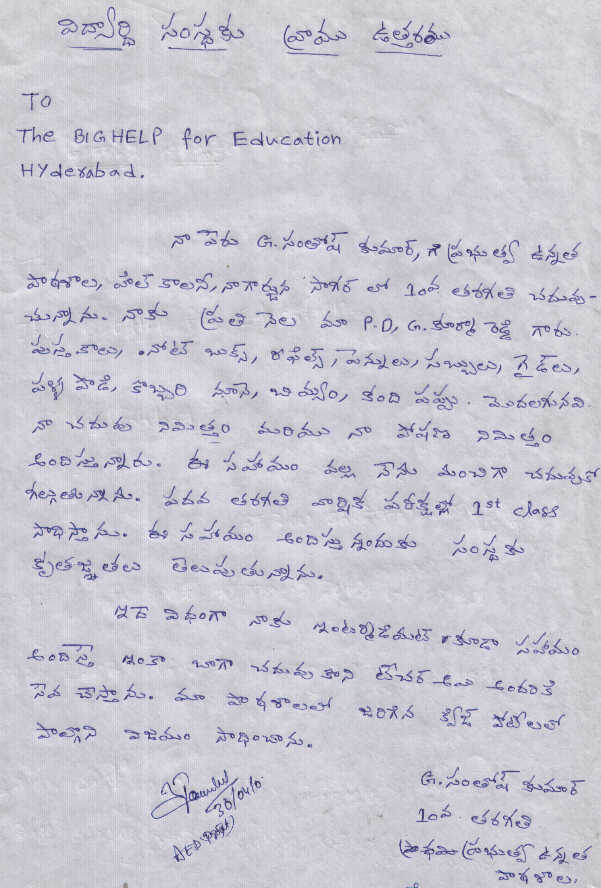 విద్యార్థి సంస్థకు వ్రాయు ఉత్తరము
TO
The BIGHELP for Education
HYderabad.
నా పేరు G. సంతోష్ కుమార్, ప్రభుత్వ ఉన్నత
పాఠశాల, హిల్ కాలనీ, నాగార్జున సాగర్ లో 10వ తరగతి చదువు-
చున్నాను. నాకు ప్రతి నెల మా P.D, G. రెడ్డి గారు.
పుస్తకాలు, నోట్ బుక్స్, రఫ్‌బుక్స్, పెన్నులు, సబ్బులు, గైడ్‌లు,
పళ్ళ పొడి, కొబ్బరి నూనె, బియ్యం, కంది పప్పు. మొదలగునవి
నా చదువు నిమిత్తం మరియు నా పోషణ నిమిత్తం
అందిస్తున్నారు. ఈ సహాయం వల్ల నేను మంచిగా చదువుకో
గల్గుతున్నాను. పదవ తరగతి వార్షిక పరీక్షల్లో 1st class
సాధిస్తాను. ఈ సహాయం అందిస్తున్నందుకు సంస్థకు
కృతజ్ఞతలు తెలుపుతున్నాను.
ఇదే విధంగా నాకు ఇంటర్మీడియట్ కూడా సహాయం
అందిస్తే ఇంకా బాగా చదువుకొని టీచర్ అయి అందరికి
సేవ చేస్తాను. మా పాఠశాలలో జరిగిన క్విజ్ పోటీలలో
పాల్గొని విజయం సాధించాను.
30/04/0
G. సంతోష్ కుమార్
10వ తరగతి
ప్రభుత్వ ఉన్నత
పాఠశాల,